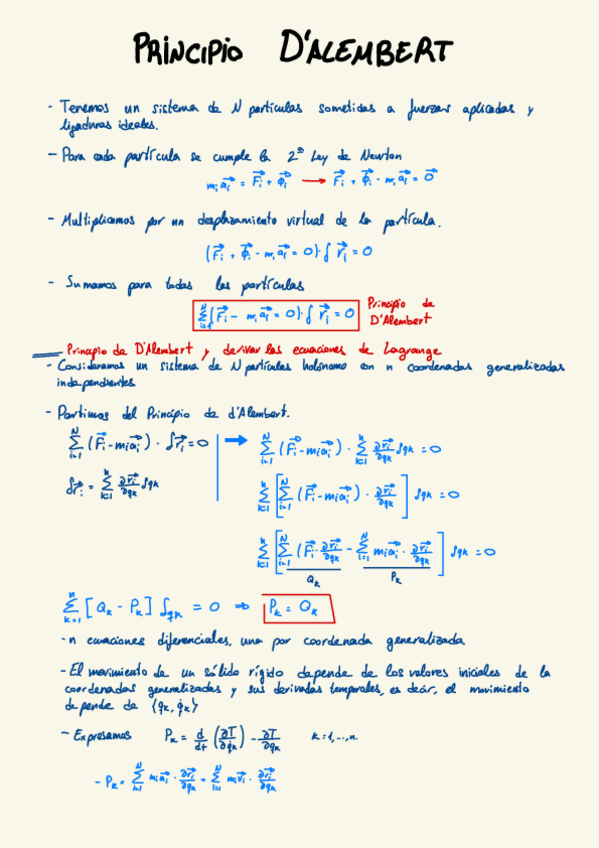 PRINCIPIO D'ALEMBERT
- Tenemos un sistema de N partículas sometidas a fuerzas aplicadas y
ligaduras ideales.
- Para cada partícula se cumple la 2ª Ley de Newton
m_i a⃗_i = F⃗_i + Φ⃗_i → F⃗_i + Φ⃗_i - m_i a⃗_i = 0⃗
- Multiplicamos por un desplazamiento virtual de la partícula.
(F⃗_i + Φ⃗_i - m_i a⃗_i = 0) · δ r⃗_i = 0
- Sumamos para todas las partículas
∑_{i=1}^{N} (F⃗_i - m_i a⃗_i = 0) · δ r⃗_i = 0 Principio de
D'Alembert
Principio de D'Alembert y derivar las ecuaciones de Lagrange
- Consideramos un sistema de N partículas holónomo con n coordenadas generalizadas
independientes
- Partimos del Principio de d'Alembert.
∑_{i=1}^{N} (F⃗_i - m_i a⃗_i) · δr⃗_i = 0 → ∑_{i=1}^{N} (F⃗_i - m_i a⃗_i) · ∑_{k=1}^{n} ∂r⃗_i/∂q_k δq_k = 0
δr⃗_i = ∑_{k=1}^{n} ∂r⃗_i/∂q_k δq_k
∑_{k=1}^{n} [∑_{i=1}^{N} (F⃗_i - m_i a⃗_i) · ∂r⃗_i/∂q_k] δq_k = 0
∑_{k=1}^{n} [∑_{i=1}^{N} (F⃗_i · ∂r⃗_i/∂q_k - ∑_{i=1}^{N} m_i a⃗_i · ∂r⃗_i/∂q_k] δq_k = 0
Q_k P_k
∑_{k=1}^{n} [Q_k - P_k] δq_k = 0 ⇒ P_k = Q_k
- n ecuaciones diferenciales, una por coordenada generalizada
- El movimiento de un sólido rígido depende de los valores iniciales de la
coordenadas generalizadas y sus derivadas temporales, es decir, el movimiento
depende de {q_k, q̇_k}
- Expresamos P_k = d/dt (∂T/∂q̇_k) - ∂T/∂q_k k=1,...,n.
- P_k = ∑_{i=1}^{N} m_i a⃗_i · ∂r⃗_i/∂q_k = ∑_{i=1}^{N} m_i v̇⃗_i · ∂r⃗_i/∂q_k